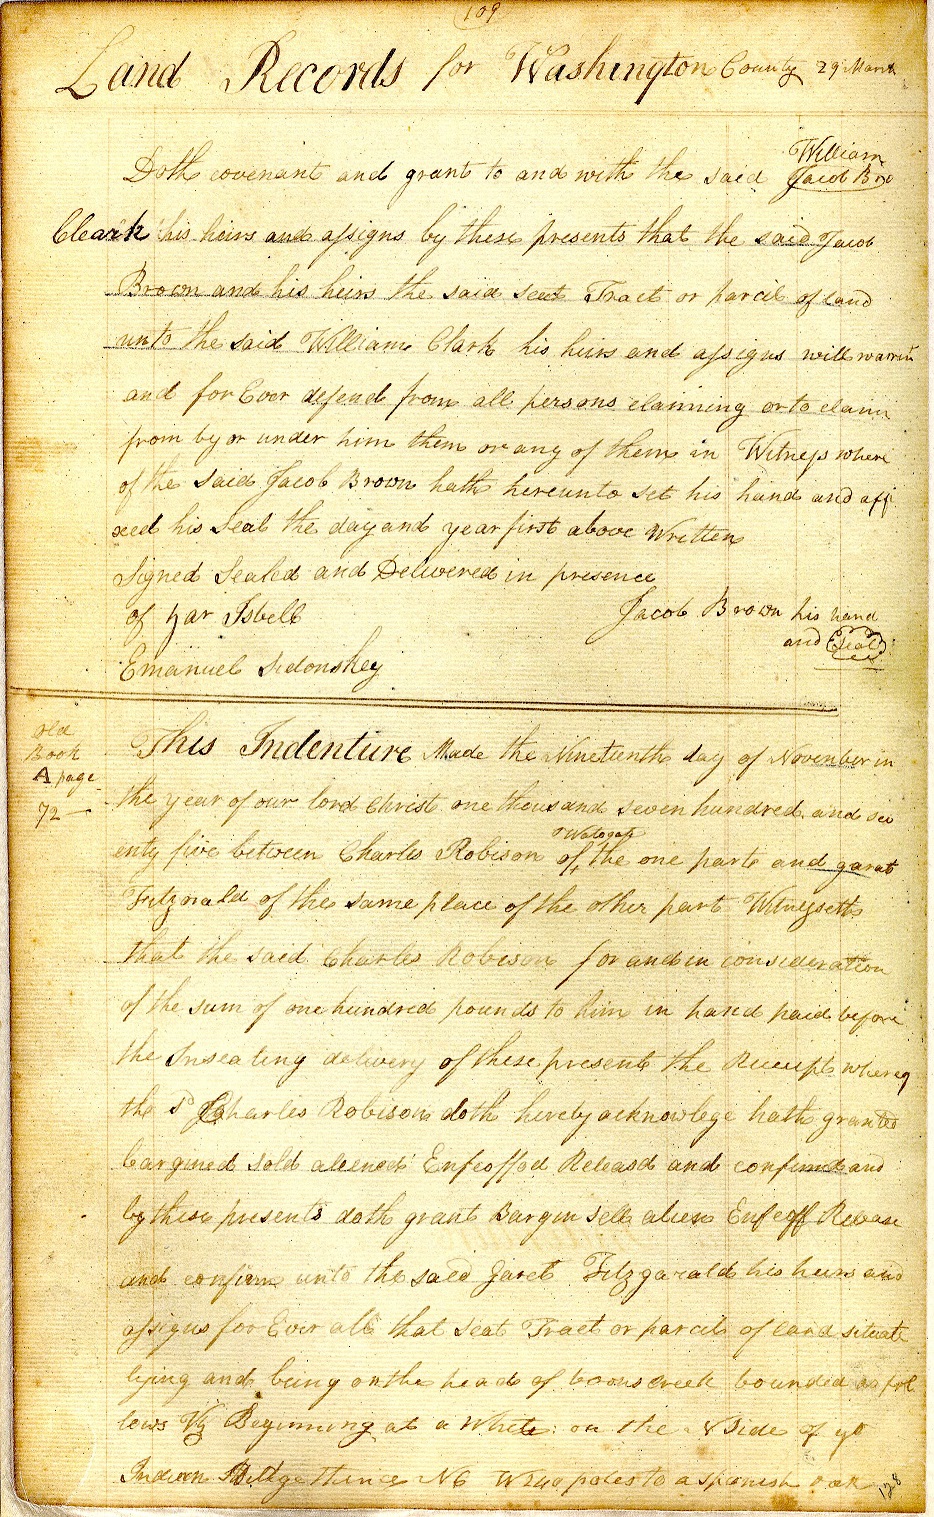 109
Land Records for Washington County 29 March
William
Doth covenant and grant to and with the said Jacob Bro
Clark his heirs and assigns by these presents that the said Jacob
Brown and his heirs the said seat Tract or parcil of land
unto the said William Clark his heirs and assigns will warrin
and for Ever defend from all persons claiming or to claim
from by or under him them or any of them in Witness where
of the said Jacob Brown hath hereunto set his hand and aff
xed his Seal the day and year first above Written
Signed Sealed and Delivered in presence
of Zar Isbell Jacob Brown his hand
and Seal
Emanuel Sidonskey
old
Book
A page
72 —
This Indenture Made the Nineteenth day of November in
the year of our lord Christ one thousand seven hundred and sev
enty five between Charles Robison of the one parte and garat
Watoga
Fitzgrald of the same place of the other part Witnesseth
that the said Charles Robison for and in consideration
of the sum of one hundred pounds to him in hand paid before
the Inseating delivery of these presents the Receipt whereof
the sd Charles Robison doth hereby acknowlege hath granted
bargined sold aliened Enfeoffed Releasd and confirmd and
by these presents doth grant Bargin sell alien Enfeoff Release
and confirm unto the said Jaret Fitzgarald his heirs and
assigns for Ever all that seat Tract or parcil of land situate
lying and being on the head of boons creek bounded as fol
lows Viz Beginning at a White on the N Side of ye
Indian Ridge thence N6 W240 poles to a spanish oak
128